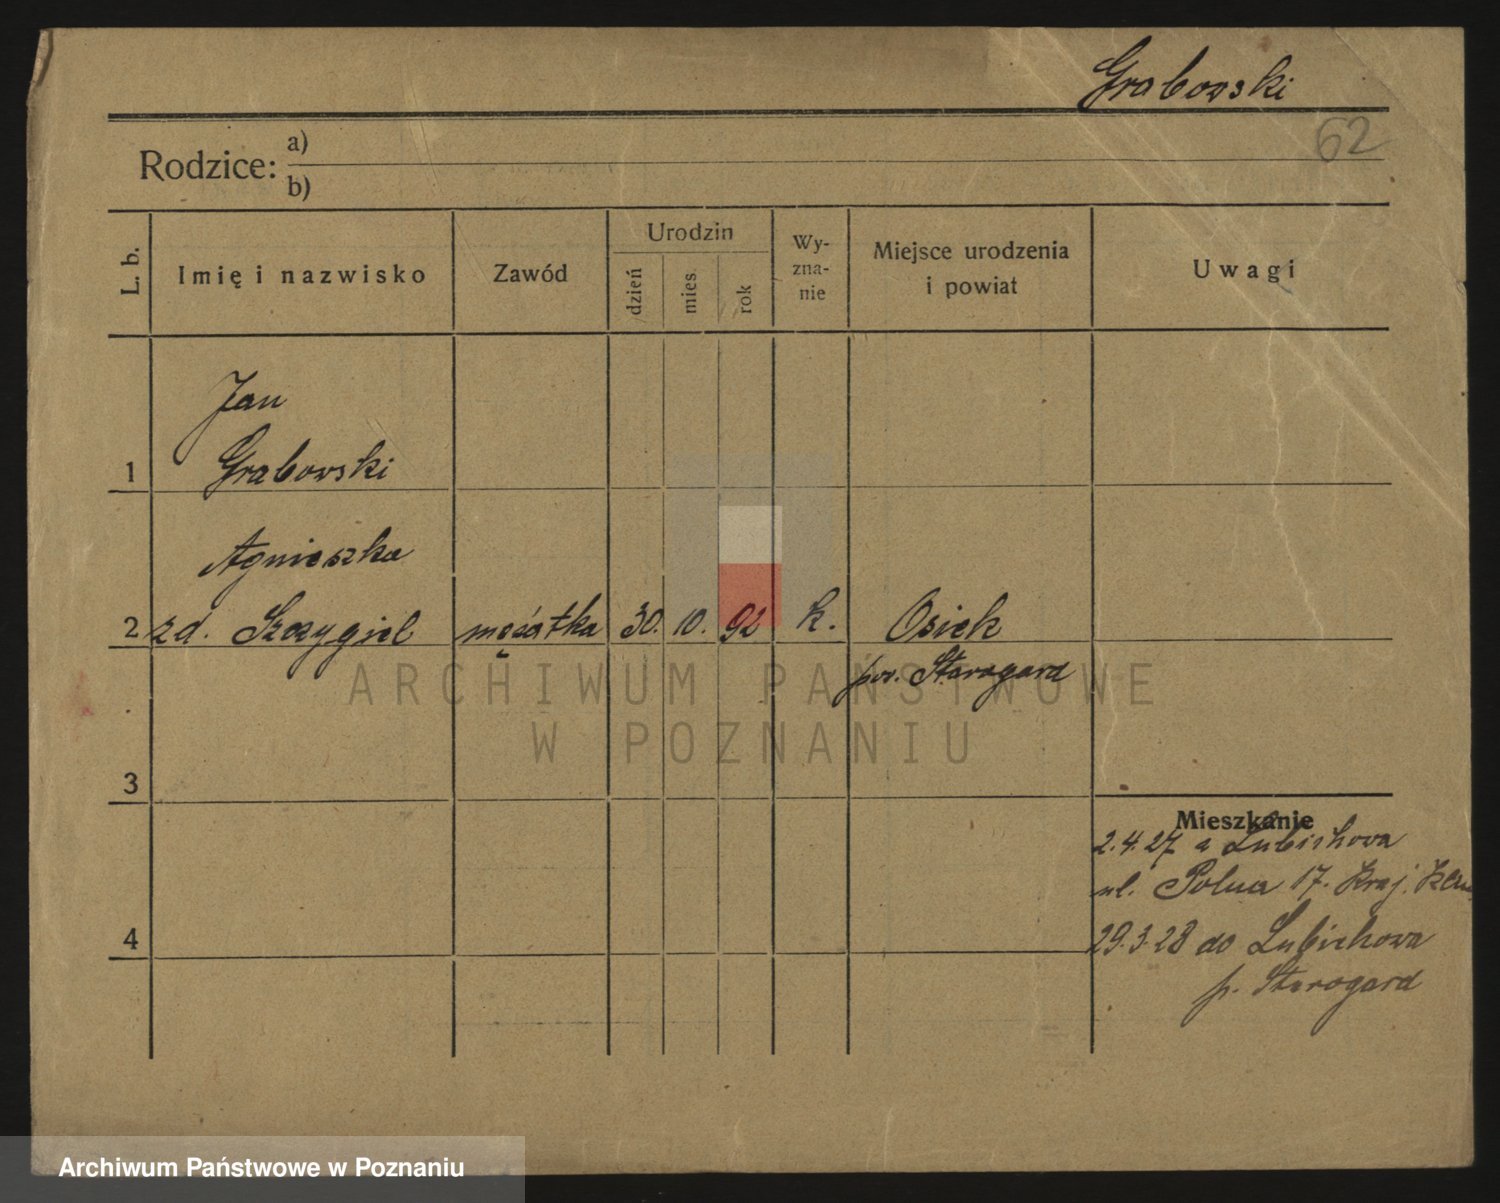 Grabowski
62
Rodzice: a)
b)
L. b.
Imię i nazwisko
Zawód
Urodzin
dzień
mies.
rok
Wy-
zna-
nie
Miejsce urodzenia
i powiat
Uwagi
Jan
1 Grabowski
Agnieszka
2 zd. Szczygiel mężatka 30. 10. 92 k. Osiek
pow. Starogard
ARCHIWUM PAŃSTWOWE
W POZNANIU
3
Mieszkanie
2.4.27 a Lubichowa
ul. Polna 17. Kraj.
4 29.3.28 do Lubichowa
p. Starogard
Archiwum Państwowe w Poznaniu